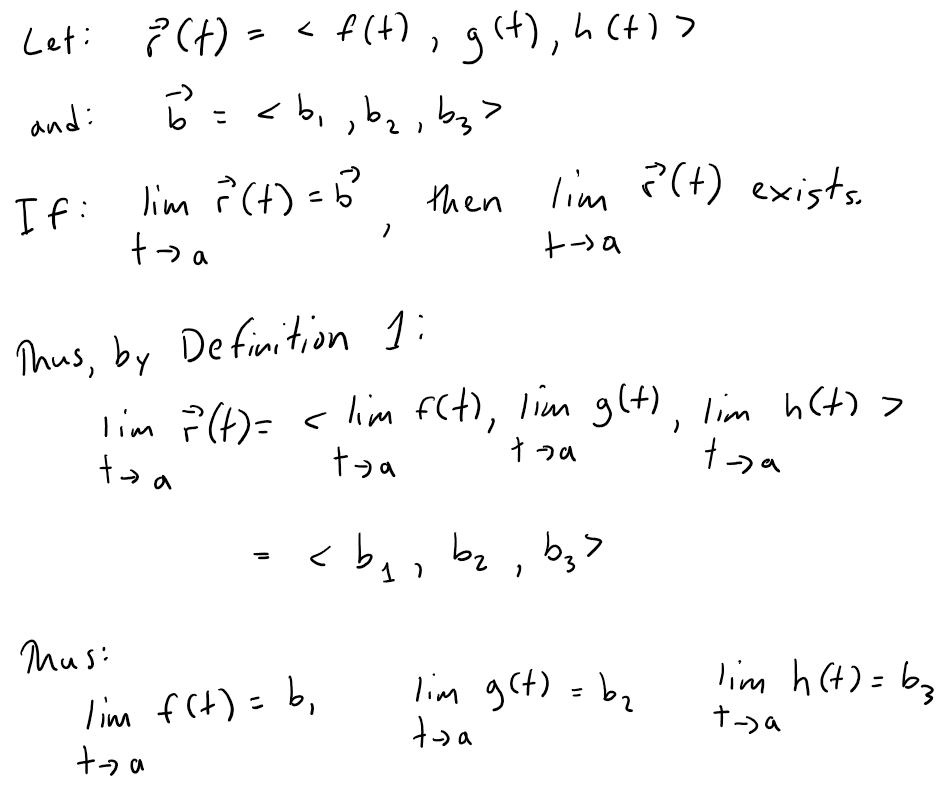 Let: r⃗(t) = < f(t), g(t), h(t) >
and: b⃗ = < b₁, b₂, b₃ >
If: lim t→a r⃗(t) = b⃗, then lim t→a r⃗(t) exists.
Thus, by Definition 1:
lim t→a r⃗(t) = < lim t→a f(t), lim t→a g(t), lim t→a h(t) >
= < b₁, b₂, b₃ >
Thus:
lim t→a f(t) = b₁ lim t→a g(t) = b₂ lim t→a h(t) = b₃